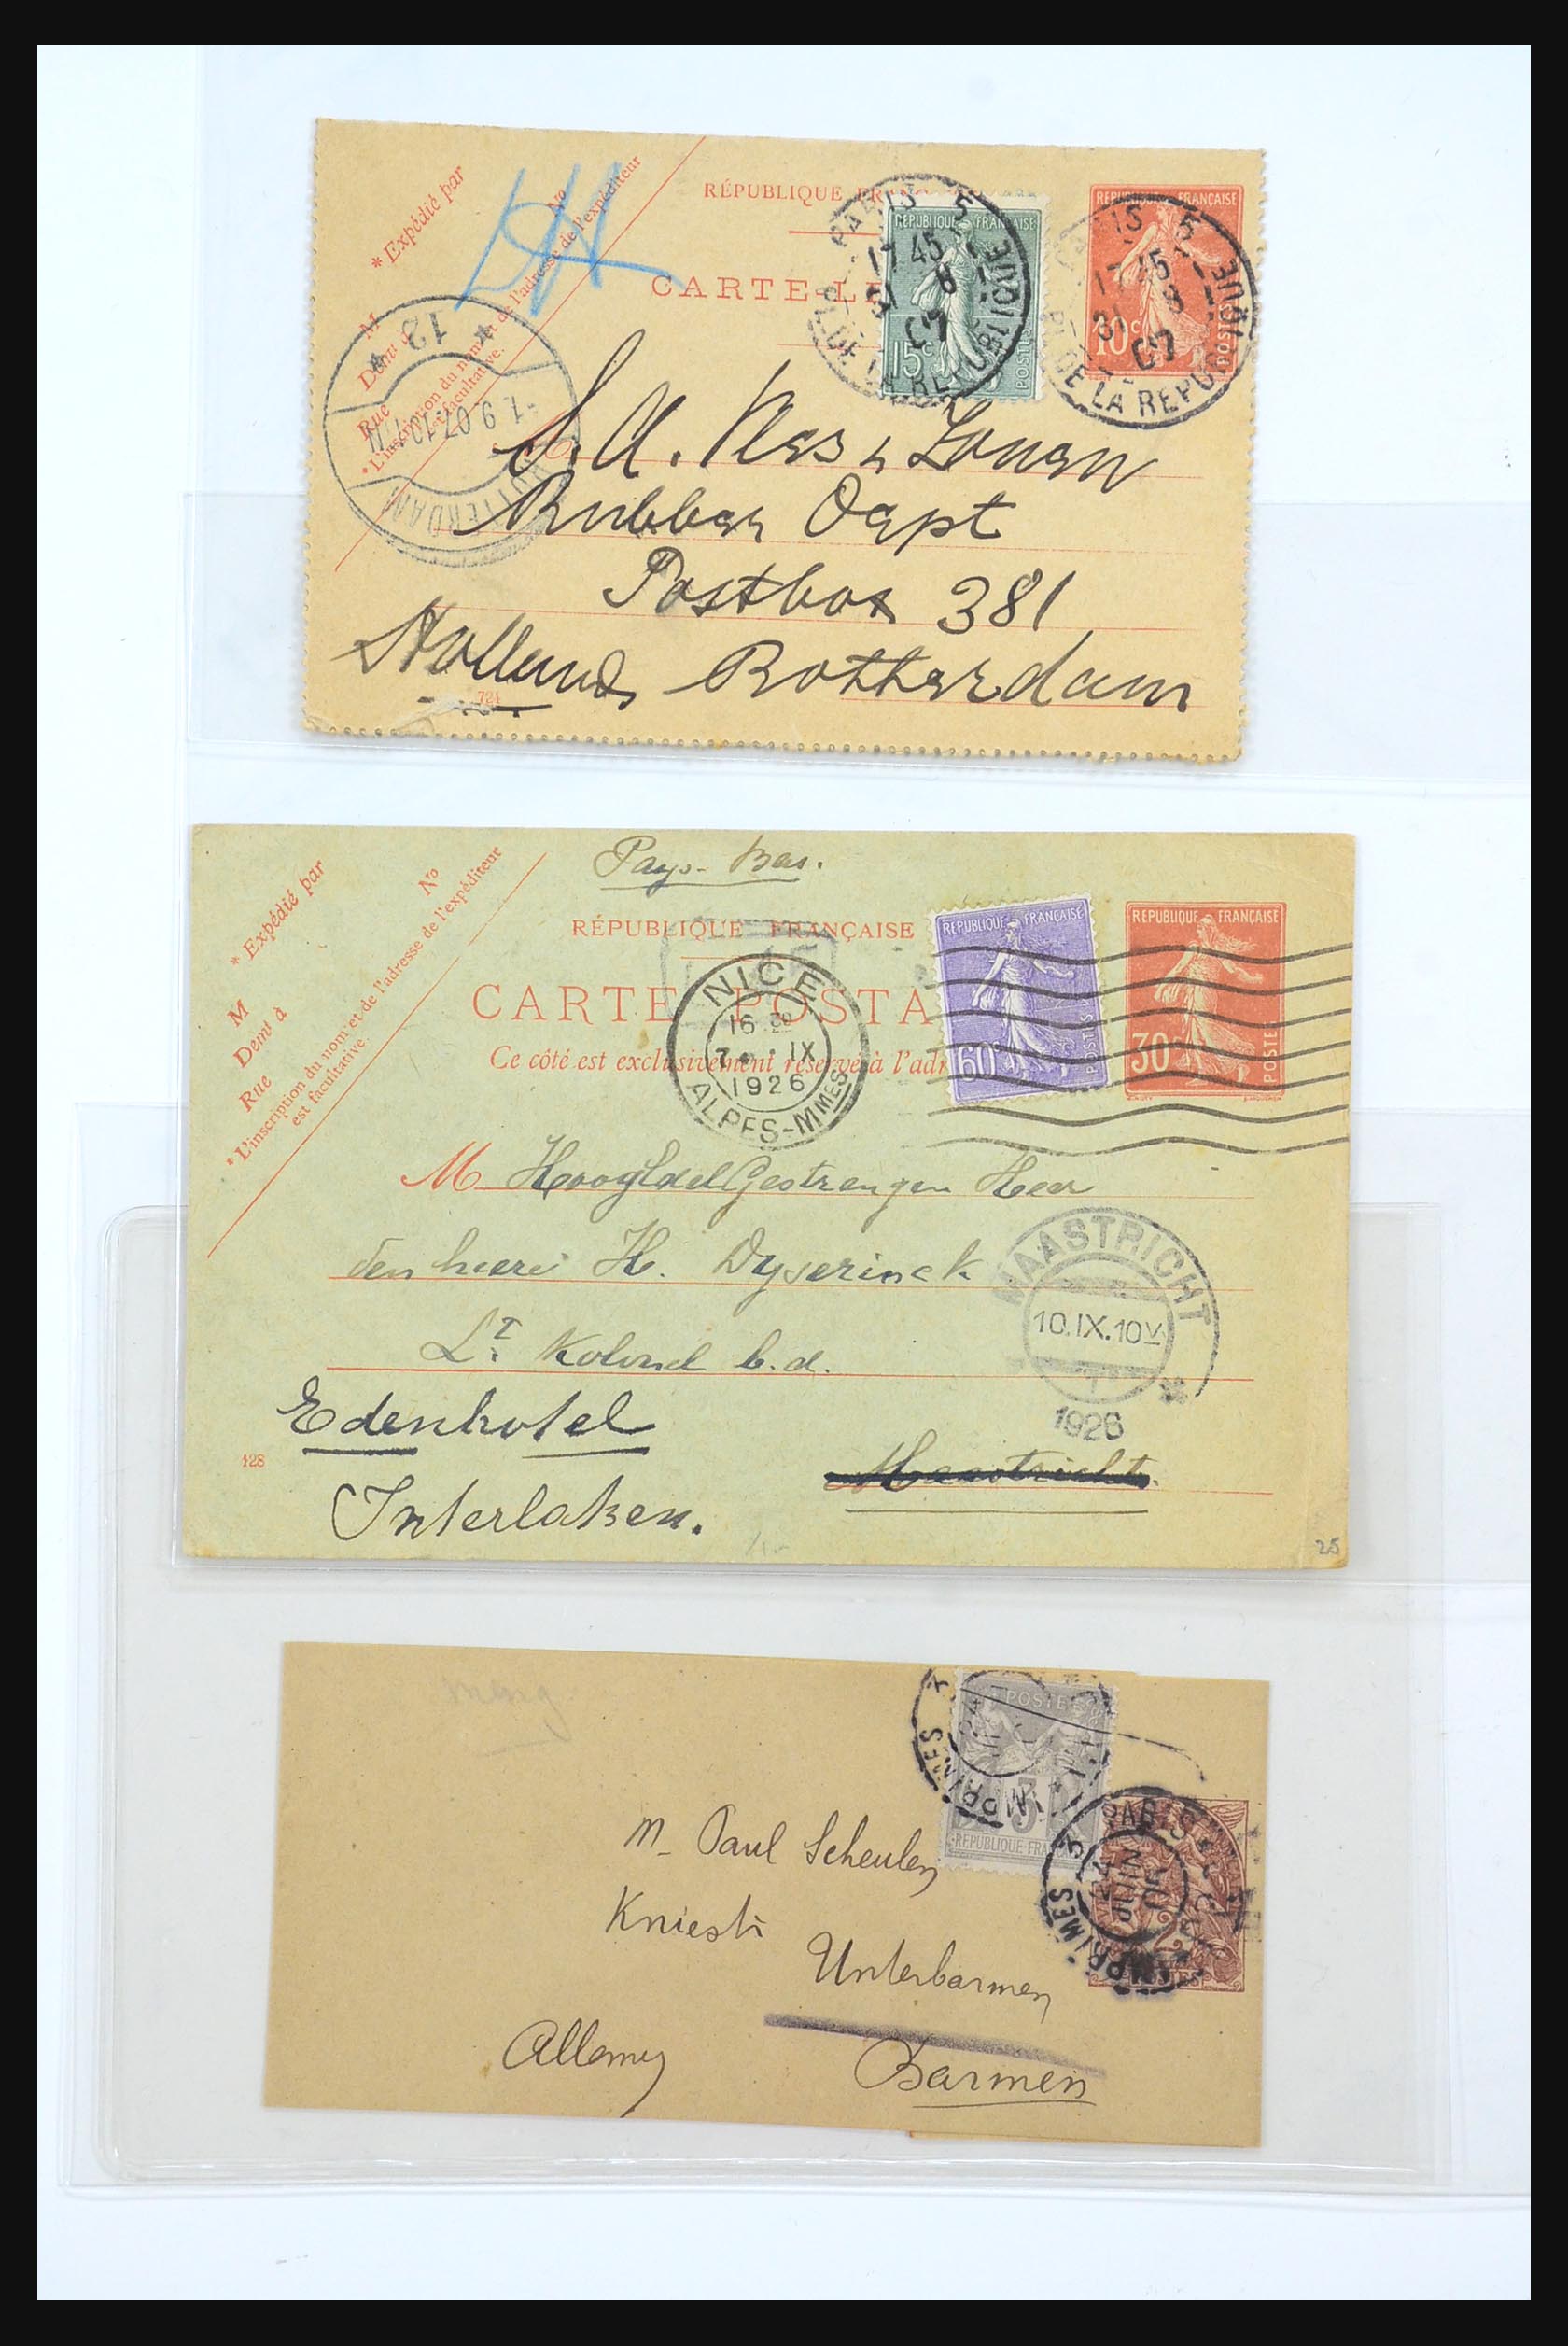 * Expédié par
No
M
Demt à
Rue
* L'inscription du nom et de l'adresse de l'expéditeur
est facultative.
RÉPUBLIQUE
CARTE-L
REPUBLIQUE FRANÇAISE
15c
POSTES
REPUBLIQUE FRANÇAISE
10c
POSTES
PARIS 5
17 45
31 8
07
PL. DE LA REPUBLIQUE
* 12 *
1.9.07
ROTTERDAM
Rubber Dept
Postbox 381
Holland Rotterdam
721
Pays-Bas.
* Expédié par
No
M
Demt à
Rue
* L'inscription du nom et de l'adresse de l'expéditeur
est facultative.
RÉPUBLIQUE FRANÇAISE
CARTE POSTA
Ce côté est exclusivement réservé à l'adr
REPUBLIQUE FRANÇAISE
60c
POSTES
REPUBLIQUE FRANÇAISE
30c
POSTES
NICE
16
7 IX
1926
ALPES-MMES
M HooglEdelGestrengen Heer
den heere H. Dyserinck
Lt Kolonel b.d.
MAASTRICHT
10.IX.10V
1
1926
Edenhotel
Maastricht.
Interlaken.
128
25
POSTE
3
REPUBLIQUE FRA
PARIS
24
JUIN
05
IMPRIMES
2
M. Paul Scheulen
Unterbarmen
Allemg
Barmen